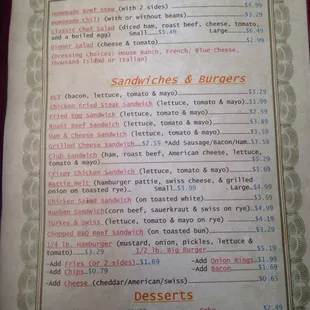 Homemade Beef Stew (with 2 sides) $4.99
Homemade Chili (with or without beans) $3.29
Classic Chef Salad (diced ham, roast beef, cheese, tomato,
and a boiled egg) Small $5.49 Large $6.49
Dinner Salad (cheese & tomato) $2.99
(Dressing Choices: House Ranch, French, Blue Cheese,
Thousand Island or Italian)
Sandwiches & Burgers
BLT (bacon, lettuce, tomato & mayo) $3.29
Chicken Fried Steak Sandwich (lettuce, tomato & mayo) $3.99
Fried Egg Sandwich (lettuce, tomato & mayo) $2.59
Roast Beef Sandwich (lettuce, tomato & mayo) $3.89
Ham & Cheese Sandwich (lettuce, tomato & mayo) $3.59
Grilled Cheese Sandwich $2.59 +Add Sausage/Bacon/Ham $3.50
Club Sandwich (ham, roast beef, American cheese, lettuce,
tomato & mayo) $5.69
Crispy Chicken Sandwich (lettuce, tomato & mayo) $3.69
Pattie Melt (hamburger pattie, swiss cheese, & grilled
onion on toasted rye) Small $3.99 Large $4.99
Chicken Salad Sandwich (on toasted white) $3.59
Reuben Sandwich (corn beef, sauerkraut & swiss on rye) $4.99
Turkey & Swiss (lettuce, tomato & mayo on rye) $4.19
Chopped BBQ Beef Sandwich (on toasted bun) $3.29
1/4 lb. Hamburger (mustard, onion, pickles, lettuce &
tomato) $3.29 1/2 lb. Big Burger $5.19
-Add Fries (or 2 sides) $1.69 -Add Onion Rings $1.99
-Add Chips $0.79 -Add Bacon $1.69
-Add Cheese (cheddar/American/swiss) $0.65
Desserts
$2.49